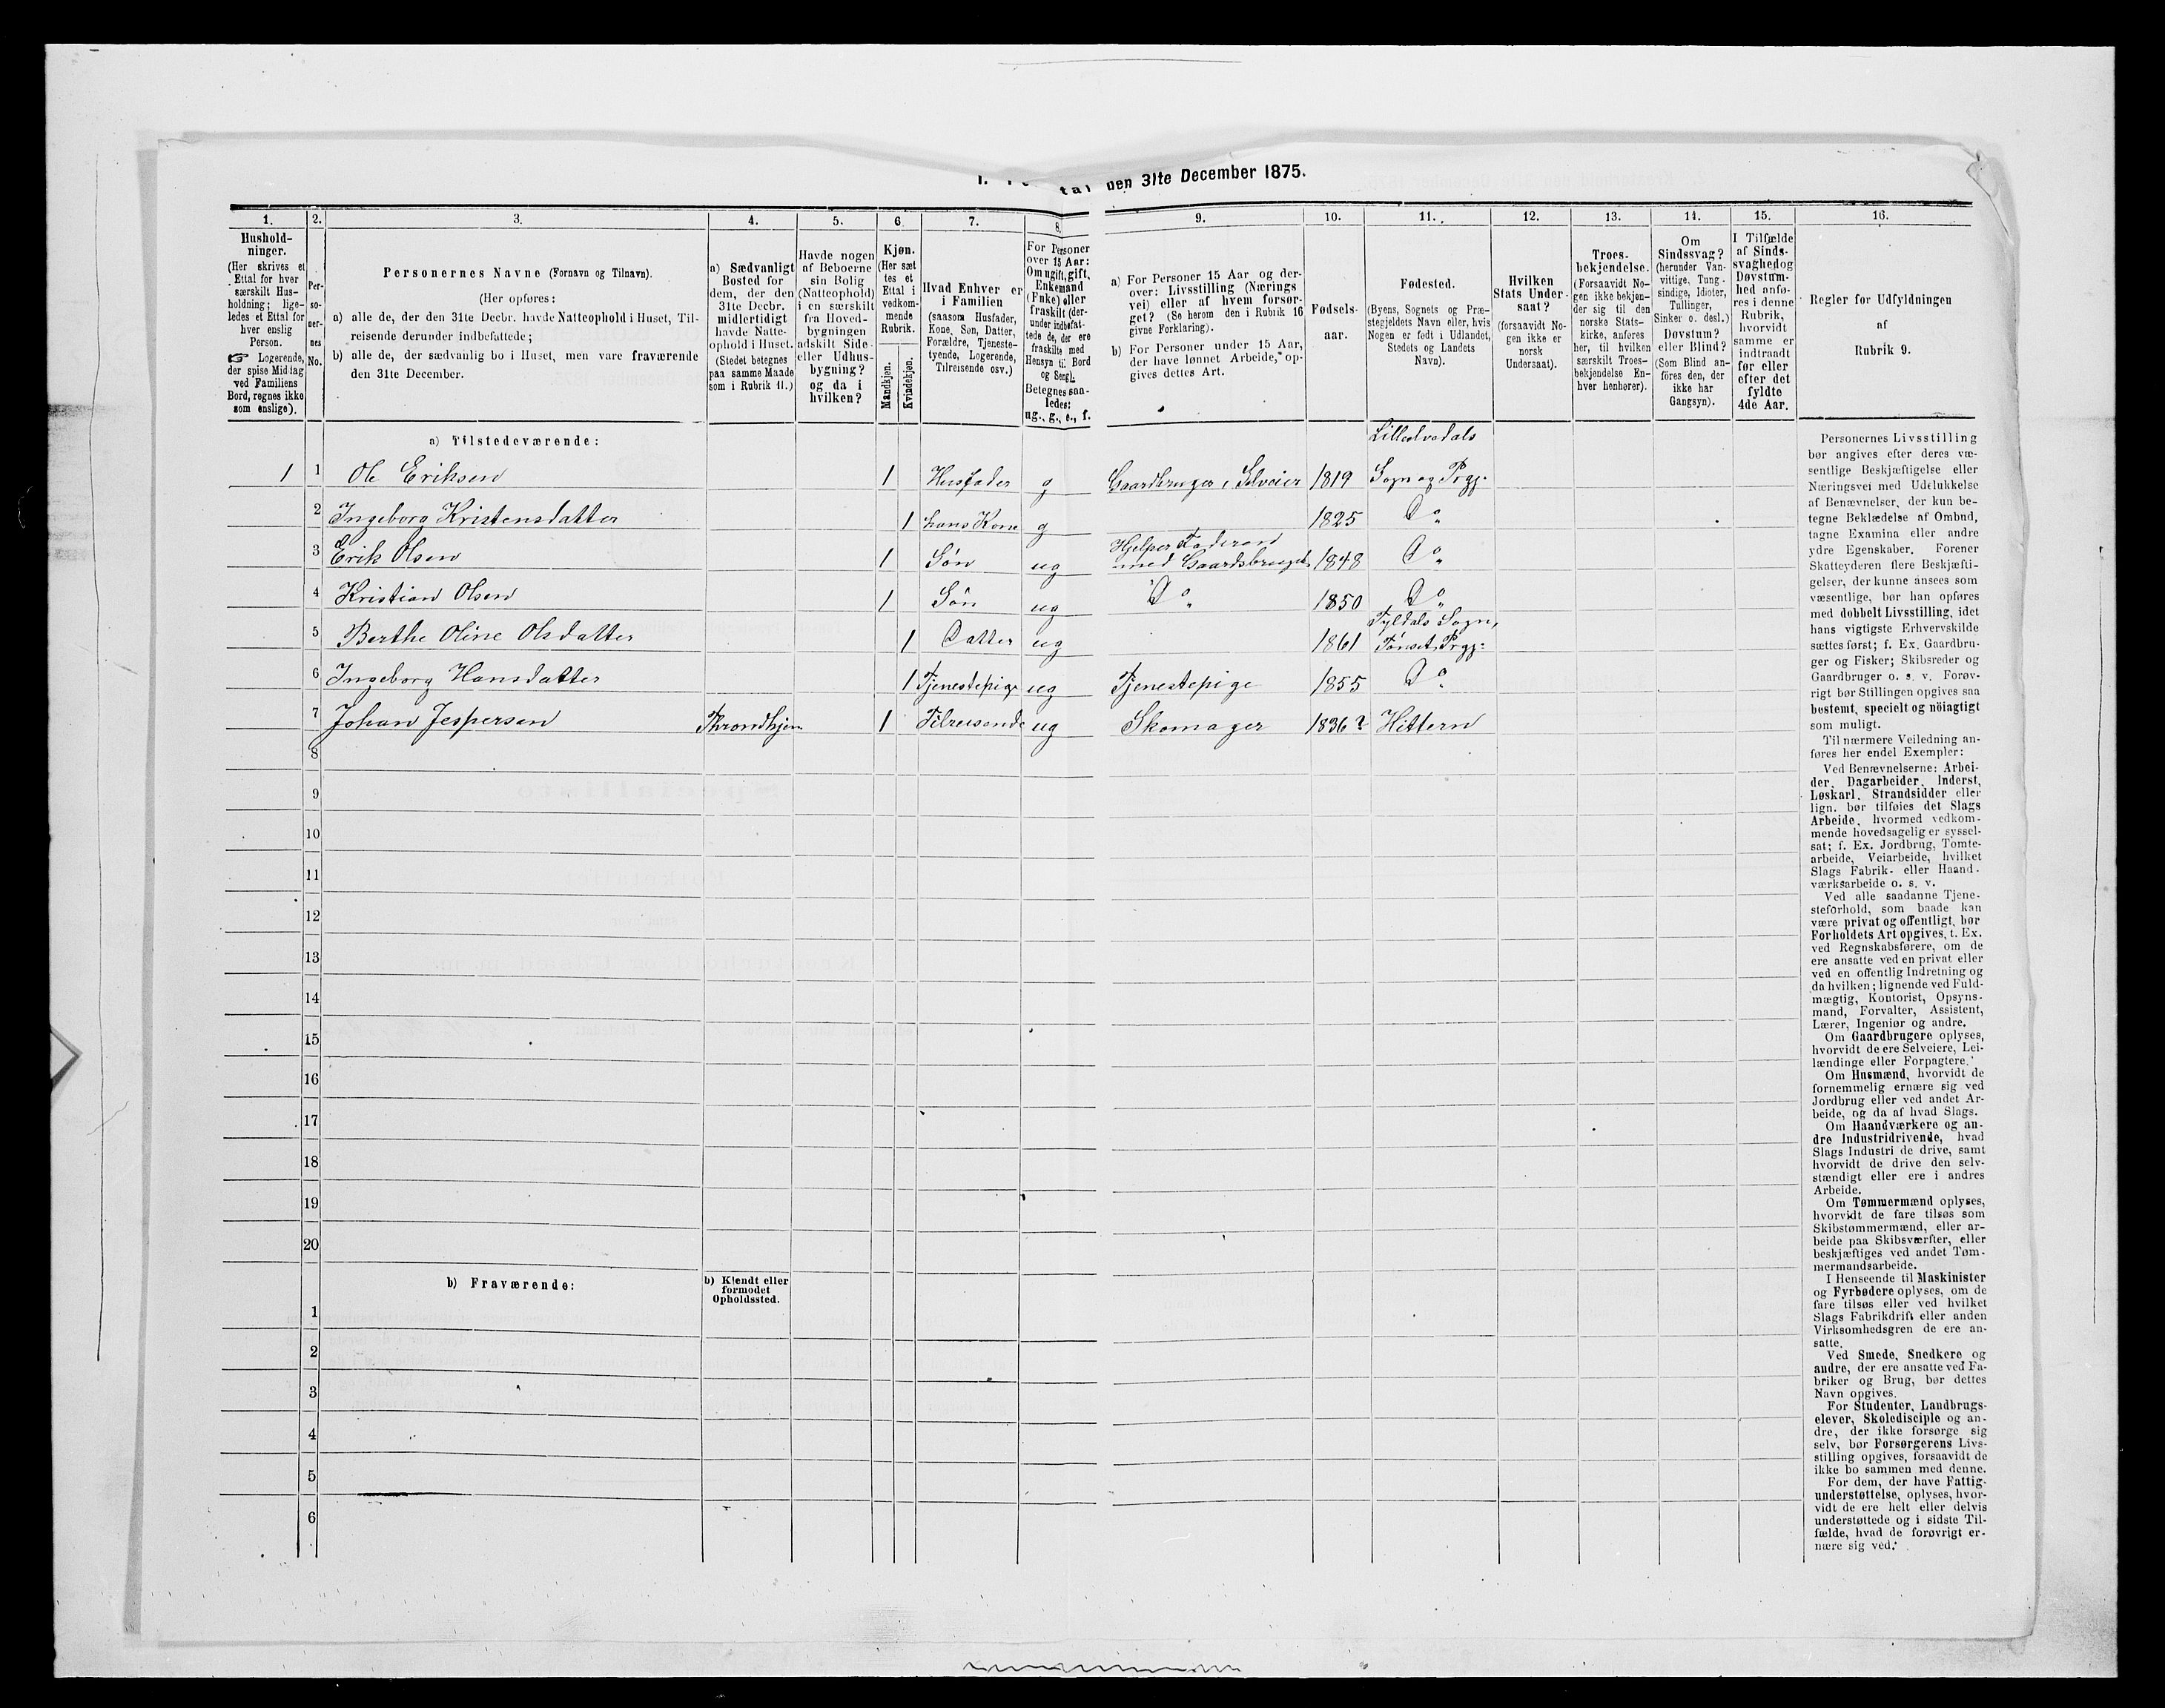 den 31te December 1875.
1. 2. 3. 4. 5. 6. 7. 8. 9. 10. 11. 12. 13. 14. 15. 16.
Hushold-
ninger.
(Her skrives et
Ettal for hver
særskilt Hus-
holdning; lige-
ledes et Ettal for
hver enslig
Person.
☞ Logerende,
der spise Middag
ved Familiens
Bord, regnes ikke
som enslige).
Per-
so-
ner-
nes
No.
Personernes Navne (Fornavn og Tilnavn).
(Her opføres:
a) alle de, der den 31te Decbr. havde Natteophold i Huset, Til-
reisende derunder indbefattede;
b) alle de, der sædvanlig bo i Huset, men vare fraværende
den 31te December.
a) Sædvanligt
Bosted for
dem, der den
31te Decbr.
midlertidigt
havde Natte-
ophold i Huset.
(Stedet betegnes
paa samme Maade
som i Rubrik 11.)
Havde nogen
af Beboerne
sin Bolig
(Natteophold)
i en særskilt
fra Hoved-
bygningen
adskilt Side-
eller Udhus-
bygning?
og da i
hvilken?
Kjøn.
(Her sæt
tes et
Ettal i
vedkom-
mende
Rubrik.
Mandkjøn.
Kvindekjøn.
Hvad Enhver er
i Familien
(saasom Husfader,
Kone, Søn, Datter,
Forældre, Tjeneste-
tyende, Logerende,
Tilreisende osv.)
For Personer
over 15 Aar:
Om ugift, gift,
Enkemand
(Enke) eller
fraskilt (der-
under indbefat-
tede de, der ere
fraskilte med
Hensyn til Bord
og Seng).
Betegnes saa-
ledes:
ug., g., e., f.
a) For Personer 15 Aar og der-
over: Livsstilling (Nærings
vei) eller af hvem forsør-
get? (Se herom den i Rubrik 16
givne Forklaring).
b) For Personer under 15 Aar,
der have lønnet Arbeide, op-
gives dettes Art.
Fødsels-
aar.
Fødested.
(Byens, Sognets og Præ-
stegjeldets Navn eller, hvis
Nogen er født i Udlandet,
Stedets og Landets
Navn).
Hvilken
Stats Under-
saat?
(forsaavidt No-
gen ikke er
norsk
Undersaat).
Troes-
bekjendelse.
(Forsaavidt No-
gen ikke bekjen-
der sig til den
norske Stats-
kirke, anføres
her, til hvilken
særskilt Troes-
bekjendelse En-
hver henhører).
Om
Sindssvag?
(herunder Van-
vittige, Tung-
sindige, Idioter,
Tullinger,
Sinker o. desl.)
Døvstum?
eller Blind?
(Som Blind an-
föres den, der
ikke har
Gangsyn).
I Tilfælde
af Sinds-
svaghed og
Døvstum-
hed anfø-
res i denne
Rubrik,
hvorvidt
samme er
indtraadt
før eller
efter det
fyldte
4de Aar.
Regler for Udfyldningen
af
Rubrik 9.
a) Tilstedeværende:
Lilleelvedals
1 1 Ole Eriksen 1 Husfader g Gaardbruger, Selveier 1819 Sogn og Prgj.
2 Ingeborg Kristensdatter 1 hans Kone g 1825 Do
Hjelper Faderen
3 Erik Olsen 1 Søn ug med Gaardsbruget 1848 Do
4 Kristian Olsen 1 Søn ug Do 1850 Do
Tyldals Sogn,
5 Berthe Oline Olsdatter 1 Datter ug 1861 Tønset Prgj:
6 Ingeborg Hansdatter 1 Tjenestepige ug Tjenestepige 1855 Do
7 Johan Jespersen Throndhjem 1 Tilreisende ug Skomager 1836? Hittern
8
9
10
11
12
13
14
15
16
17
18
19
20
b) Fraværende:
b) Kjendt eller
formodet
Opholdssted.
1
2
3
4
5
6
Personernes Livsstilling
bør angives efter deres væ-
sentlige Beskjæftigelse eller
Næringsvei med Udelukkelse
af Benævnelser, der kun be-
tegne Beklædelse af Ombud,
tagne Examina eller andre
ydre Egenskaber. Forener
Skatteyderen flere Beskjæfti-
gelser, der kunne ansees som
væsentlige, bør han opføres
med dobbelt Livsstilling, idet
hans vigtigste Erhvervskilde
sættes først; f. Ex. Gaardbru-
ger og Fisker; Skibsreder og
Gaardbruger o. s. v. Forøv-
rigt bør Stillingen opgives saa
bestemt, specielt og nöiagtigt
som muligt.
Til nærmere Veiledning an-
føres her endel Exempler:
Ved Benævnelserne: Arbei-
der, Dagarbeider, Inderst,
Løskarl, Strandsidder eller
lign. bør tilføies det Slags
Arbeide, hvormed vedkom-
mende hovedsagelig er syssel-
sat; f. Ex. Jordbrug, Tomte-
arbeide, Veiarbeide, hvilket
Slags Fabrik- eller Haand-
værksarbeide o. s. v.
Ved alle saadanne Tjene-
steforhold, som baade kan
være privat og offentligt, bør
Forholdets Art opgives, t. Ex.
ved Regnskabsførere, om de
ere ansatte ved en privat eller
ved en offentlig Indretning og
da hvilken; lignende ved Fuld-
mægtig, Kontorist, Opsyns-
mand, Forvalter, Assistent,
Lærer, Ingeniør og andre.
Om Gaardbrugere oplyses,
hvorvidt de ere Selveiere, Lei-
lændinge eller Forpagtere.
Om Husmænd, hvorvidt de
fornemmelig ernære sig ved
Jordbrug eller ved andet Ar-
beide, og da af hvad Slags.
Om Haandværkere og an-
dre Industridrivende, hvad
Slags Industri de drive, samt
hvorvidt de drive den selv-
stændigt eller ere i andres
Arbeide.
Om Tømmermænd oplyses,
hvorvidt de fare tilsøs som
Skibstømmermænd, eller ar-
beide paa Skibsværfter, eller
beskjæftiges ved andet Tøm-
mermandsarbeide.
I Henseende til Maskinister
og Fyrbødere oplyses, om de
fare tilsøs eller ved hvilket
Slags Fabrikdrift eller anden
Virksomhedsgren de ere an-
satte.
Ved Smede, Snedkere og
andre, der ere ansatte ved Fa-
briker og Brug, bør dettes
Navn opgives.
For Studenter, Landbrugs-
elever, Skoledisciple og an-
dre, der ikke forsørge sig
selv, bør Forsørgerens Livs-
stilling opgives, forsaavidt de
ikke bo sammen med denne.
For dem, der have Fattig-
understøttelse, oplyses, hvor-
vidt de ere helt eller delvis
understøttede og i sidste Til-
fælde, hvad de forøvrigt er-
nære sig ved.